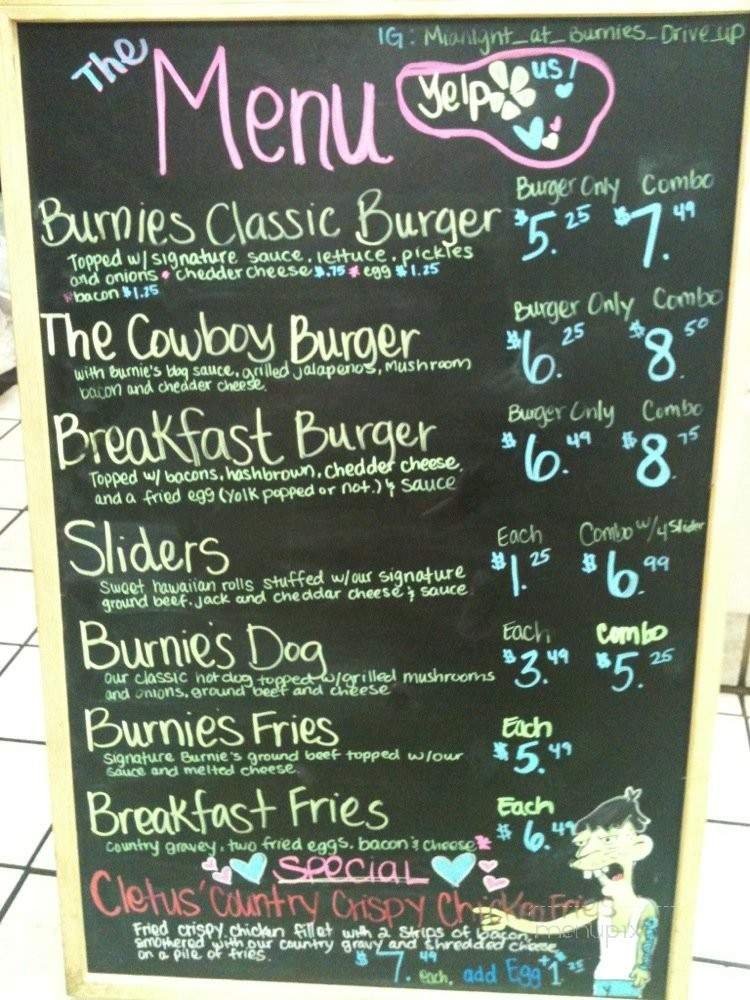 IG: Mianlgnt_at_Burnies_Drive_up
The Menu
Yelp us!
Burger Only Combo
Burnies Classic Burger $5.25 $7.49
Topped w/ signature sauce, lettuce, pickles
and onions * chedder cheese $.75 * egg $1.25
* bacon $1.25
Burger Only Combo
The Cowboy Burger $6.25 $8.50
with Burnie's bbq sauce, grilled jalapenos, mushroom
bacon and chedder cheese.
Burger Only Combo
Breakfast Burger $6.49 $8.75
Topped w/ bacons, hashbrown, chedder cheese,
and a fried egg (yolk popped or not.) & sauce
Each Combo w/ 4 Slider
Sliders $1.25 $6.99
Sweet hawaiian rolls stuffed w/our signature
ground beef, jack and cheddar cheese & sauce
Each Combo
Burnie's Dog $3.49 $5.25
our classic hotdog topped w/grilled mushrooms
and onions, ground beef and cheese
Each
Burnie's Fries $5.49
Signature Burnie's ground beef topped w/our
sauce and melted cheese
Each
Breakfast Fries $6.49
Country gravey, two fried eggs, bacon & cheese*
SPECIAL
Cletus' Country Crispy Chicken Fries
Fried crispy chicken fillet with 2 strips of bacon
smothered with our country gravy and shredded cheese
on a pile of fries.
$7.49 each, add Egg +1.25
menupix